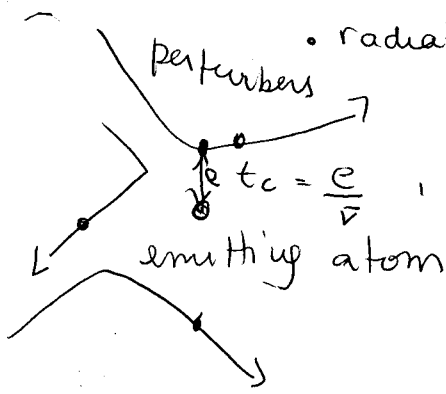 • radia
perturbers
e t_c = e/v̄
emitting atom